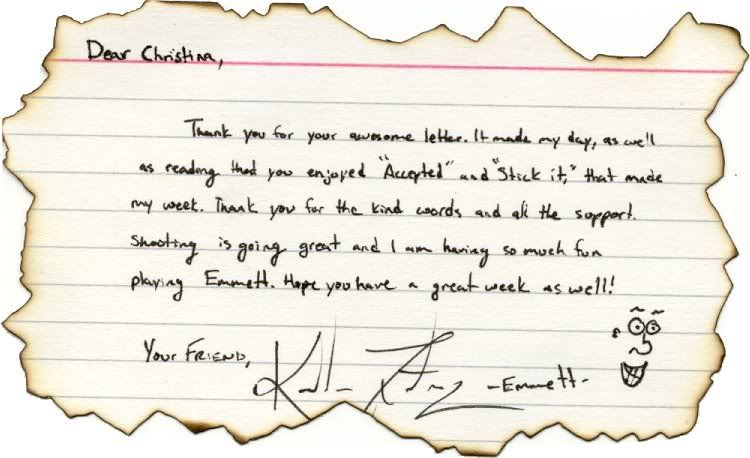 Dear Christina,
Thank you for your awesome letter. It made my day, as well
as reading that you enjoyed "Accepted" and "Stick it," that made
my week. Thank you for the kind words and all the support.
Shooting is going great and I am having so much fun
playing Emmett. Hope you have a great week as well!
Your Friend,
-Emmett-